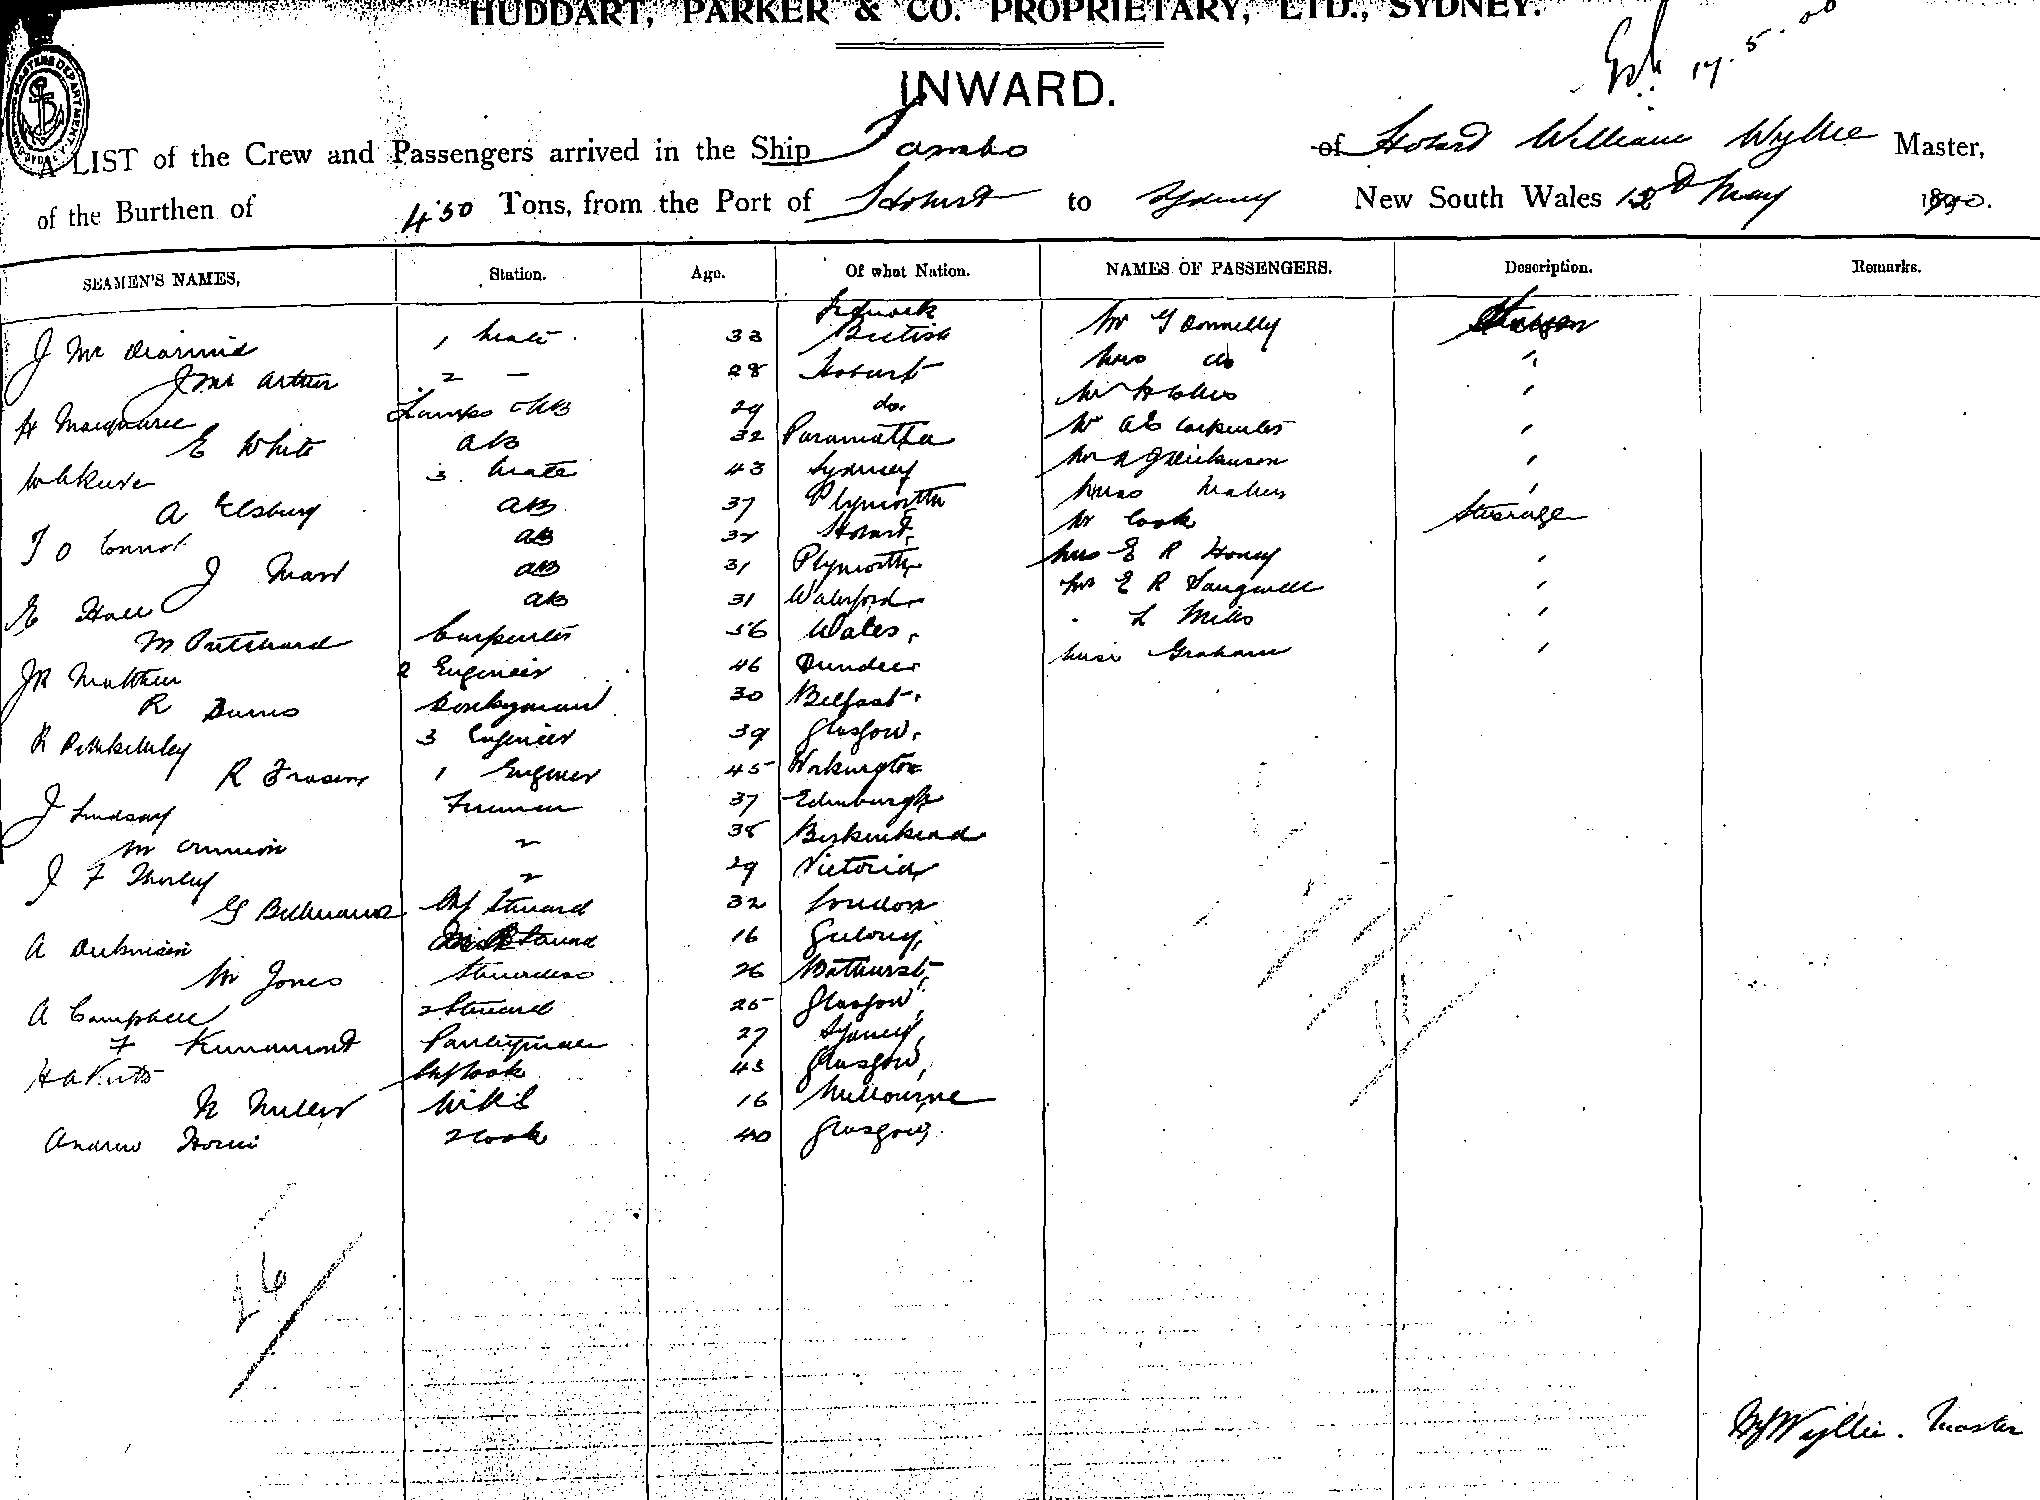 HUDDART, PARKER & CO. PROPRIETARY, LTD., SYDNEY.
17.5.00
INWARD.
A LIST of the Crew and Passengers arrived in the Ship Tambo of Hobart William Wyllie Master,
of the Burthen of 450 Tons, from the Port of Hobart to Sydney New South Wales 12th May 1900.
SEAMEN'S NAMES, Station. Age. Of what Nation. NAMES OF PASSENGERS. Description. Remarks.
J Mc Diarmid 1 Mate 33 British Mr G Donnelly Saloon
J Mc Arthur 2 — 28 Hobart Mrs do "
H Macquarie Lamps & AB 29 do. Mr "
E White AB 32 Paramatta Mr A E Carpenter "
3 Mate 43 Sydney Mr A J Dickenson "
A Elsbury AB 37 Plymouth Miss "
T O Connor AB 32 Hobart Mr Cook Steerage
J Marr AB 31 Plymouth Mrs E R Honey "
E Hall AB 31 Waterford Mr E R "
M Pritchard Carpenter 56 Wales, " L Mills "
JR Matthew 2 Engineer 46 Dundee Miss Graham "
R Burns Donkeyman 30 Belfast.
R 3 Engineer 39 Glasgow.
R Fraser 1 Engineer 45 Workington
J Lindsay Fireman 37 Edinburgh
M " 38 Birkenhead
J F Thorley " 29 Victoria
G Chf Steward 32 London
A Dickinson 16 Geelong,
M Jones Stewardess 26 Bathurst,
A Campbell 2 Steward 25 Glasgow,
F Pantryman 27 Sydney,
H A Chf Cook 43 Glasgow,
N Miller 16 Melbourne
Andrew 2 Cook 40 Glasgow.
26
WJ Wyllie. Master